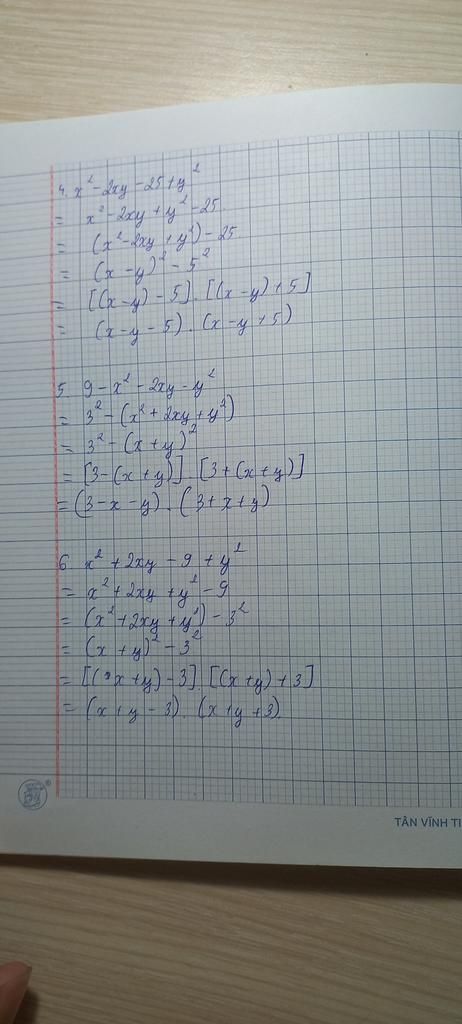 4. x² - 2xy - 25 + y²
= x² - 2xy + y² - 25
= (x² - 2xy + y²) - 25
= (x - y)² - 5²
= [(x - y) - 5] . [(x - y) + 5]
= (x - y - 5) . (x - y + 5)
5. 9 - x² - 2xy - y²
= 3² - (x² + 2xy + y²)
= 3² - (x + y)²
= [3 - (x + y)] . [3 + (x + y)]
= (3 - x - y) . (3 + x + y)
6. x² + 2xy - 9 + y²
= x² + 2xy + y² - 9
= (x² + 2xy + y²) - 3²
= (x + y)² - 3²
= [(x + y) - 3] . [(x + y) + 3]
= (x + y - 3) . (x + y + 3)
TÂN VĨNH TI